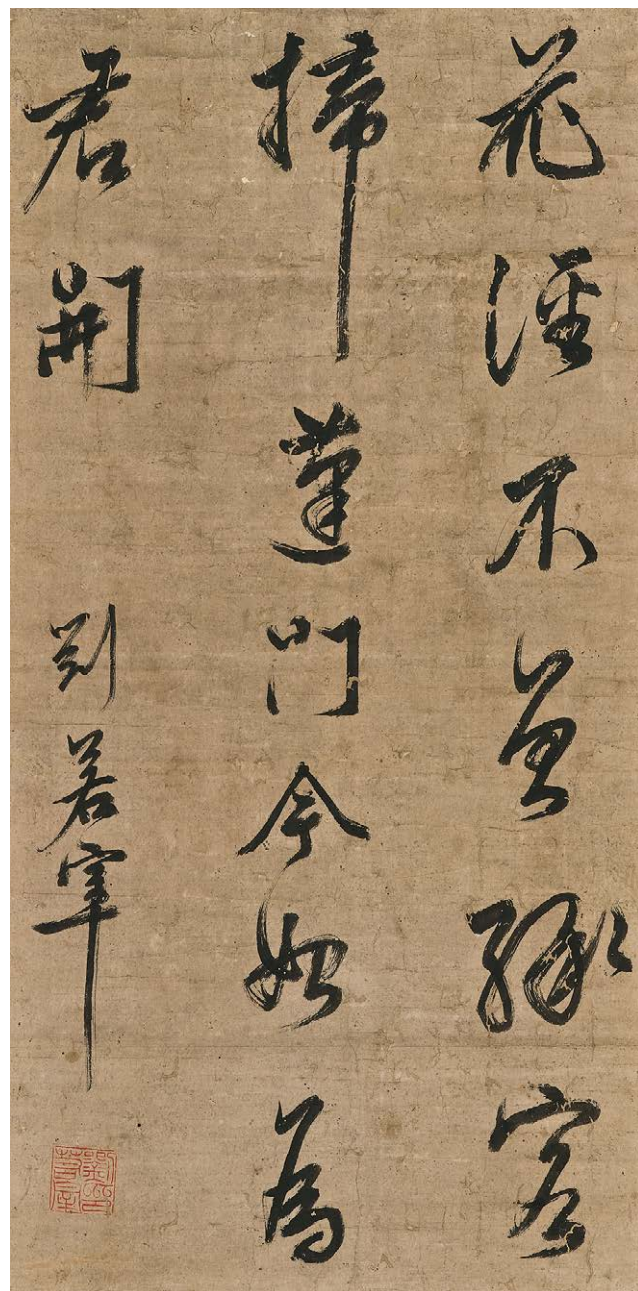 花徑不曾緣客
掃蓬門今始為
君開 劉若宰